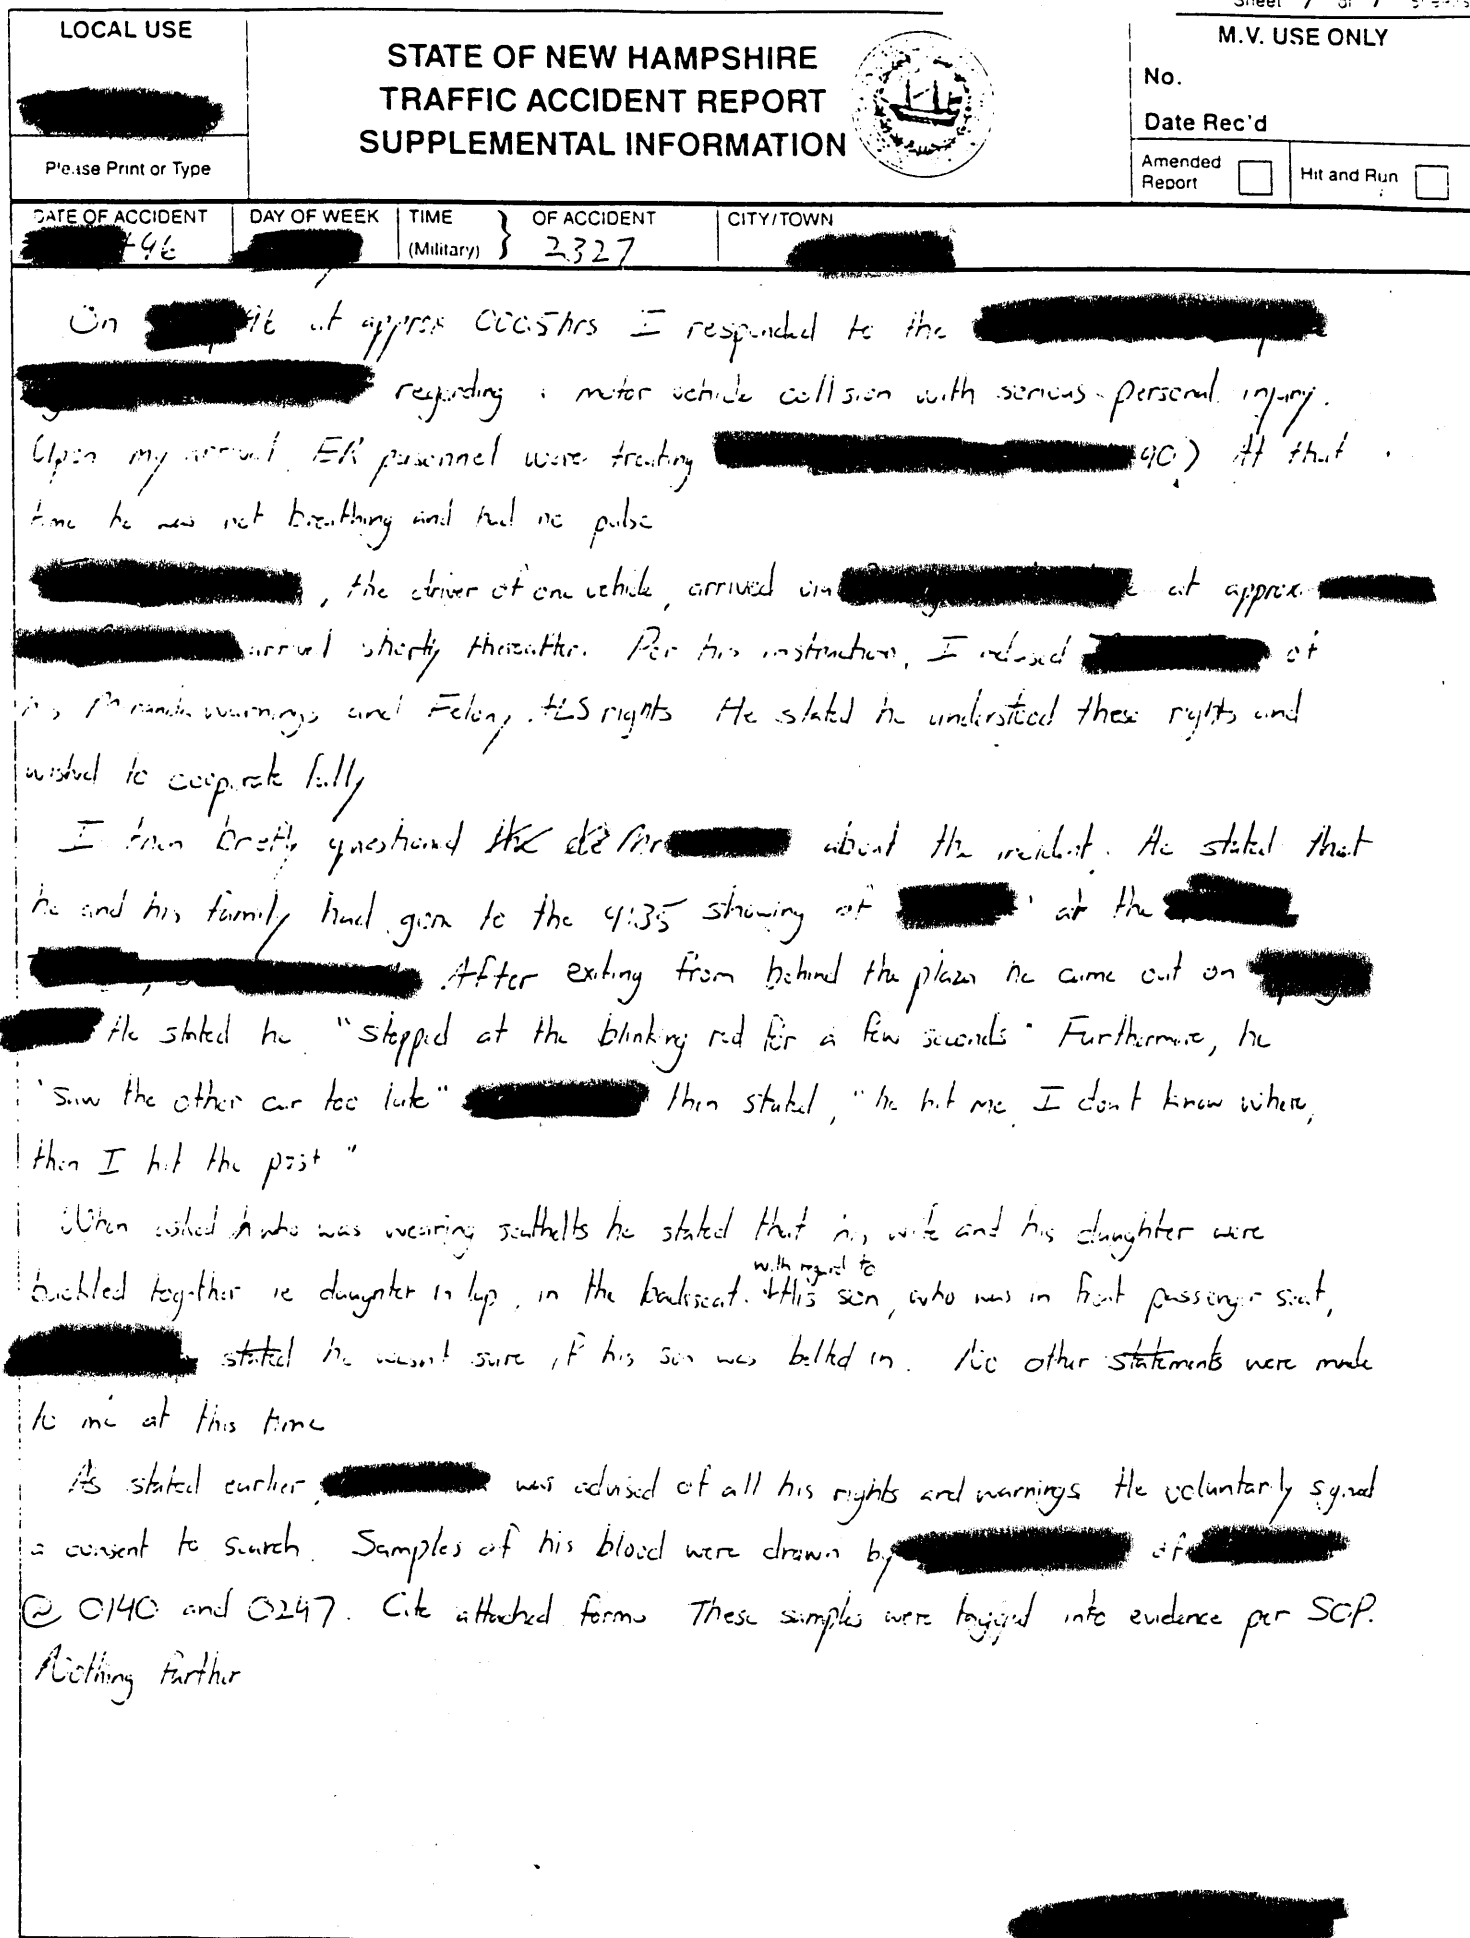 Sheet 1 of 1 Sheets
LOCAL USE
Please Print or Type
STATE OF NEW HAMPSHIRE
TRAFFIC ACCIDENT REPORT
SUPPLEMENTAL INFORMATION
M.V. USE ONLY
No.
Date Rec'd
Amended Report
Hit and Run
DATE OF ACCIDENT DAY OF WEEK TIME (Military) } OF ACCIDENT CITY/TOWN
2327
On at approx 0005hrs I responded to the
regarding a motor vehicle collision with serious personal injury.
Upon my arrival ER personnel were treating 90) At that
time he was not breathing and had no pulse
, the driver of one vehicle, arrived via at approx
arrived shortly thereafter. Per his instruction, I advised of
his Miranda warnings and Felony ALS rights He stated he understood these rights and
wished to cooperate fully
I then briefly questioned Mr about the incident. He stated that
he and his family had gone to the 4:35 showing of ' at the
. After exiting from behind the plaza he came out on
He stated he "stopped at the blinking red for a few seconds" Furthermore, he
"saw the other car too late" then stated, "he hit me, I don't know where,
then I hit the post"
When asked who was wearing seatbelts he stated that his wife and his daughter were
buckled together ie daughter in lap, in the backseat. with regard to his son, who was in front passenger seat,
stated he wasn't sure if his son was belted in. No other statements were made
to me at this time
As stated earlier, was advised of all his rights and warnings He voluntarily signed
a consent to search. Samples of his blood were drawn by of
@ 0140 and 0247. Cite attached forms These samples were tagged into evidence per SOP.
Nothing further